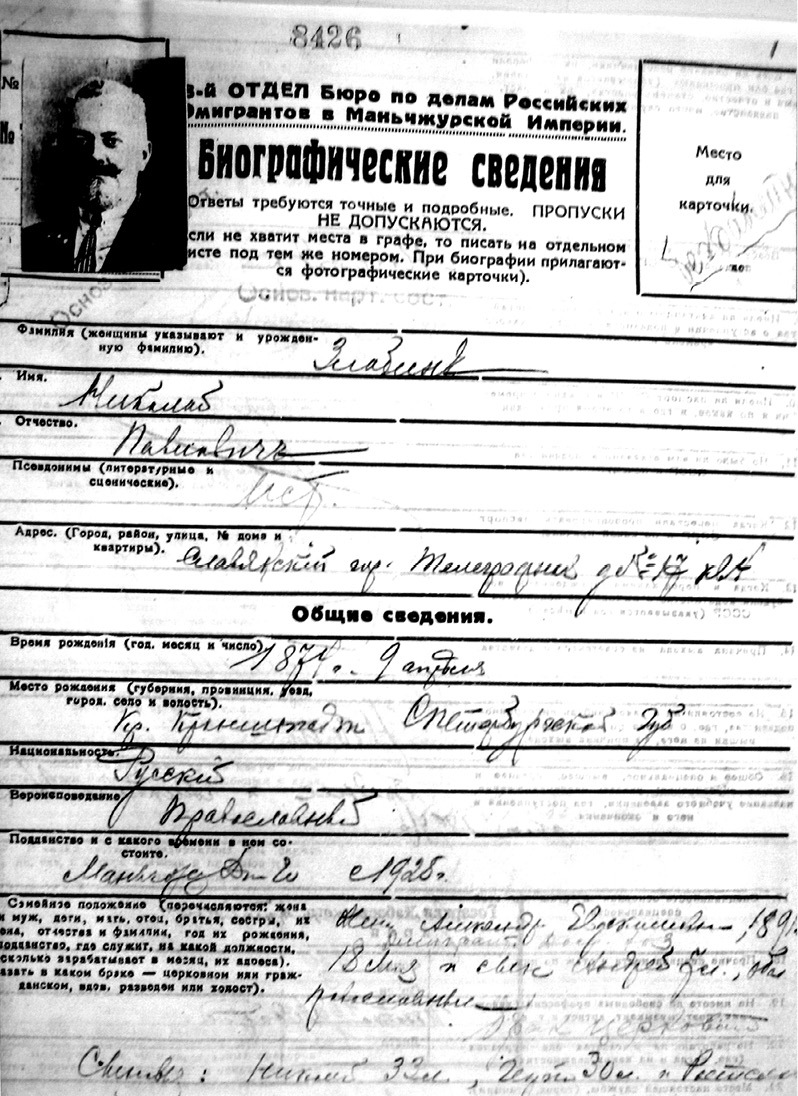 8426
1
№
№
3-й ОТДЕЛ Бюро по делам Российских
Эмигрантов в Маньчжурской Империи.
Биографические сведения
(Ответы требуются точные и подробные. ПРОПУСКИ
НЕ ДОПУСКАЮТСЯ.
Если не хватит места в графе, то писать на отдельном
листе под тем же номером. При биографии прилагают-
ся фотографические карточки).
Место
для
карточки.
Основ. карт. сост.
Фамилия (женщины указывают и урожден-
ную фамилию).
Злобинъ
Имя.
Николай
Отчество.
Павловичъ
Псевдонимы (литературные и
сценические).
Адрес. (Город, район, улица, № дома и
квартиры).
Славянский гор.
Общие сведения.
Время рождения (год, месяц и число)
1874 г. 9 апреля
Место рождения (губерния, провинция, уезд,
город, село и волость).
Кр. Кронштадт СПетербургской Губ
Национальность.
Русский
Вероисповедание
Православный
Подданство и с какого времени в нем со-
стоите.
с 192
Семейное положение (перечисляются: жена
и муж, дети, мать, отец, братья, сестры, их
имена, отчества и фамилии, год их рождения,
подданство, где служит, на какой должности,
сколько зарабатывает в месяц, их адреса).
Указать в каком браке — церковном или граж-
данском, вдов, разведен или холост).
Жена Александр
православные
брак церковный
Сыновья: Николай 33 л., 30 л.